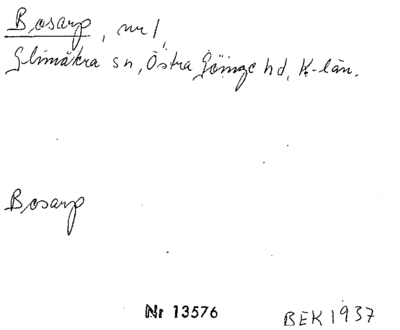 Bosarp, nr 1
Glimåkra sn, Östra Göinge hd, K-län.
Bosarp
Nr 13576
BEK 1937